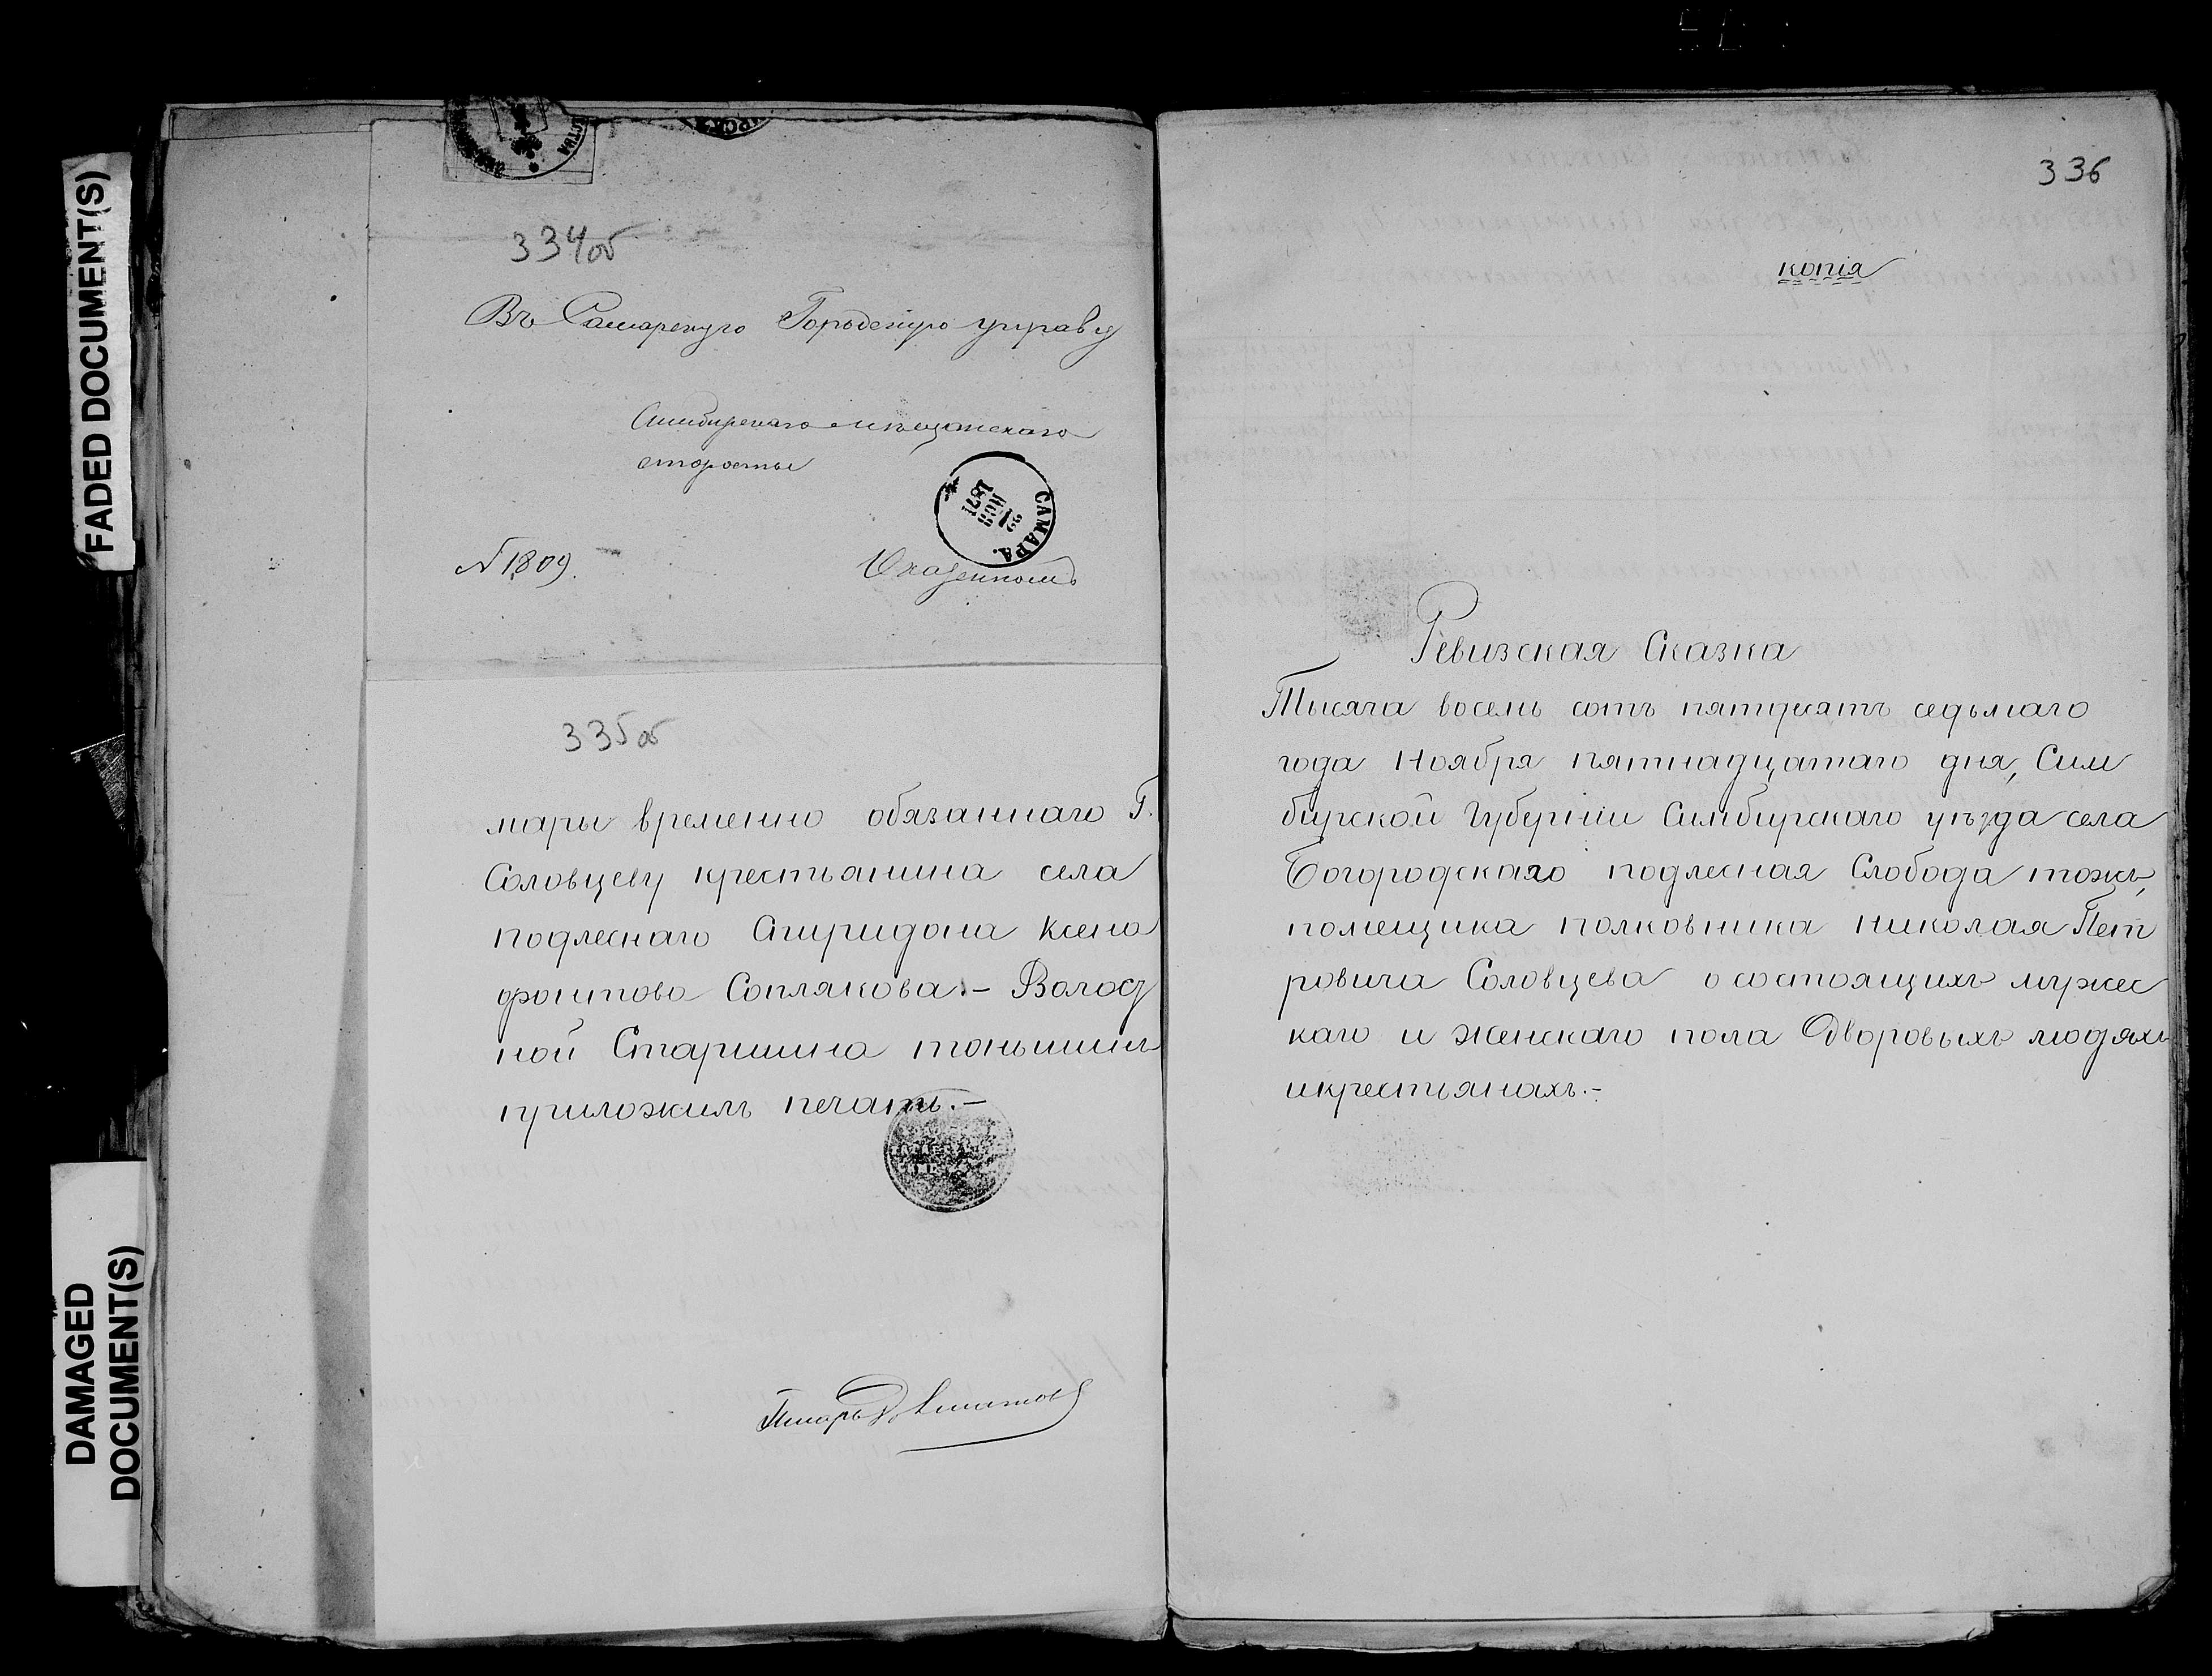 FADED DOCUMENT(S)
DAMAGED
DOCUMENT(S)
334об
Въ Самарскую Городскую управу
Симбирскаго мѣщанскаго
старосты
САМАРА.
22
НОЯ
1871
N 1809.
335об
мары временно обязаннаго Г.
Соловцеву крестьянина села
подлеснаго Спиридона Ксено
фонтова Соплякова.– Волост
ной Старшина
приложилъ печать.–
Писарь
336
копія
Ревизская Сказка
Тысяча восемь сотъ пятдесятъ седьмаго
года Ноября пятнадцатаго дня, Сим
бирской Губерніи Симбирскаго уѣзда села
Богородскаго подлесная Слобода тожъ,
помещика полковника Николая Пет
ровича Соловцева о состоящихъ мужес
каго и женскаго пола Дворовыхъ людяхъ
и крестьянахъ.–